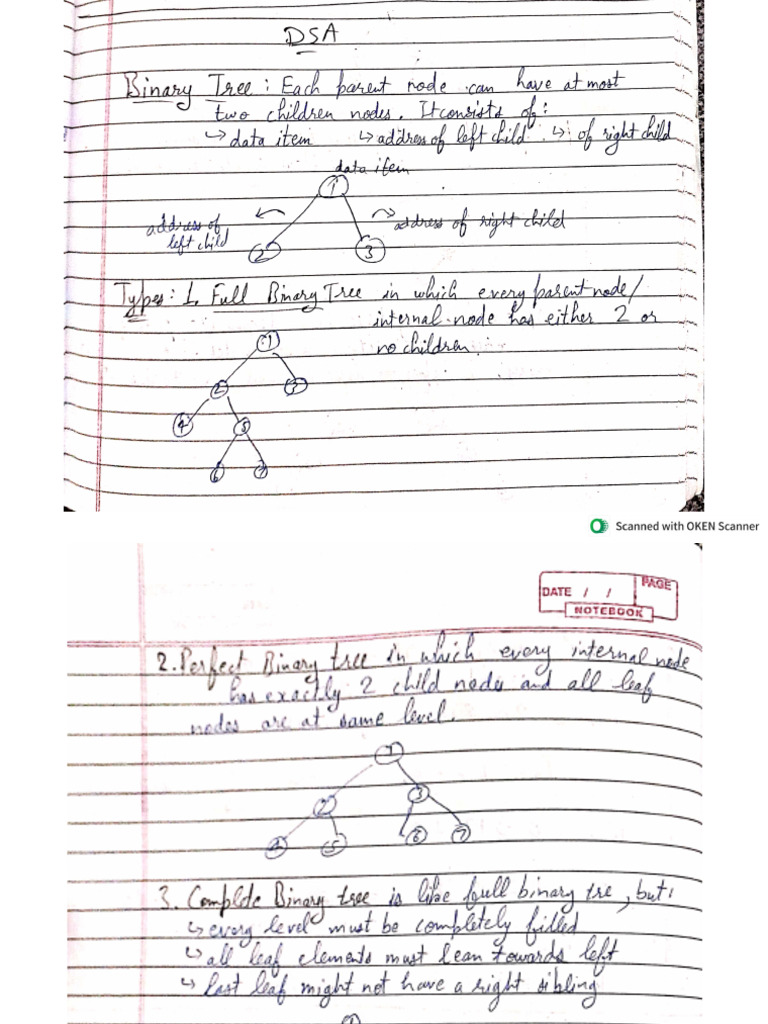 DSA
Binary Tree : Each parent node can have at most
two children nodes. It consists of :
↳ data item ↳ address of left child ↳ of right child
data item
1
address of left child
address of right child
2 3
Types : 1. Full Binary Tree in which every parent node/
internal node has either 2 or
no children.
1
2 3
4 5
6 7
Scanned with OKEN Scanner
DATE / / PAGE
NOTEBOOK
2. Perfect Binary tree in which every internal node
has exactly 2 child nodes and all leaf
nodes are at same level.
1
2 3
4 5 6 7
3. Complete Binary tree is like full binary tre, but:
↳ every level must be completely filled
↳ all leaf elements must lean towards left
↳ last leaf might not have a right sibling